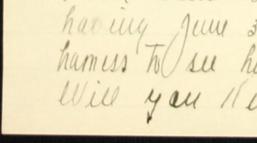 having June 3
harness to see h
Will you